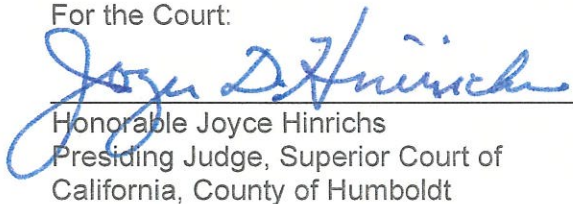 For the Court:
Joyce D. Hinrichs
Honorable Joyce Hinrichs
Presiding Judge, Superior Court of
California, County of Humboldt